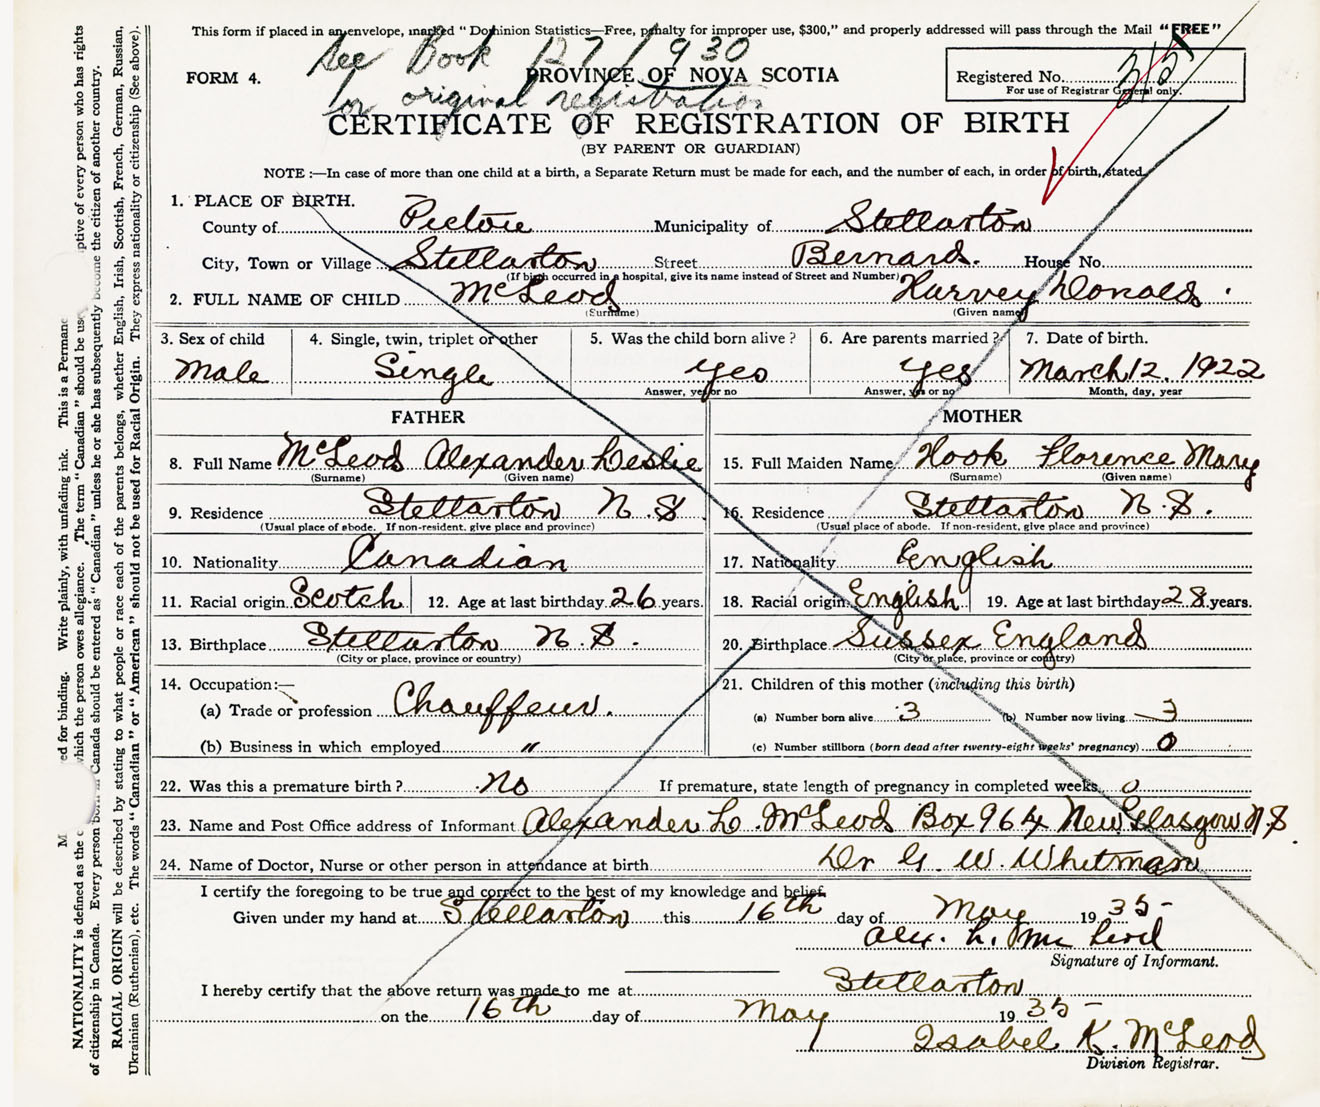 This form if placed in an envelope, marked "Dominion Statistics—Free, penalty for improper use, $300," and properly addressed will pass through the Mail "FREE"
See Book 127 / 930
for original registration
FORM 4.
PROVINCE OF NOVA SCOTIA
Registered No.
For use of Registrar General only.
CERTIFICATE OF REGISTRATION OF BIRTH
(BY PARENT OR GUARDIAN)
NOTE :—In case of more than one child at a birth, a Separate Return must be made for each, and the number of each, in order of birth, stated.
1. PLACE OF BIRTH.
County of Pictou Municipality of Stellarton
City, Town or Village Stellarton Street Bernard. House No.
(If birth occurred in a hospital, give its name instead of Street and Number)
2. FULL NAME OF CHILD McLeod Harvey Donald.
(Surname) (Given name)
3. Sex of child 4. Single, twin, triplet or other 5. Was the child born alive? 6. Are parents married? 7. Date of birth.
Male Single yes yes March 12. 1922
Answer, yes or no Answer, yes or no Month, day, year
FATHER MOTHER
8. Full Name McLeod Alexander Leslie 15. Full Maiden Name Hook Florence Mary
(Surname) (Given name) (Surname) (Given name)
9. Residence Stellarton N.S 16. Residence Stellarton N.S.
(Usual place of abode. If non-resident, give place and province) (Usual place of abode. If non-resident, give place and province)
10. Nationality Canadian 17. Nationality English
11. Racial origin Scotch 12. Age at last birthday 26 years. 18. Racial origin English 19. Age at last birthday 28 years.
13. Birthplace Stellarton N.S. 20. Birthplace Sussex England
(City or place, province or country) (City or place, province or country)
14. Occupation:— 21. Children of this mother (including this birth)
(a) Trade or profession Chauffeur. (a) Number born alive 3 (b) Number now living 3
(b) Business in which employed " (c) Number stillborn (born dead after twenty-eight weeks' pregnancy) 0
22. Was this a premature birth? No If premature, state length of pregnancy in completed weeks 0
23. Name and Post Office address of Informant Alexander L. McLeod Box 964 New Glasgow N.S.
24. Name of Doctor, Nurse or other person in attendance at birth Dr G. W. Whitman
I certify the foregoing to be true and correct to the best of my knowledge and belief.
Given under my hand at Stellarton this 16th day of May 1935-
Alex. L. McLeod
Signature of Informant.
I hereby certify that the above return was made to me at Stellarton
on the 16th day of May 1935-
Isabel K. McLeod
Division Registrar.
ed for binding. Write plainly, with unfading ink. This is a Permane
NATIONALITY is defined as the c which the person owes allegiance. The term "Canadian" should be use ptive of every person who has rights
of citizenship in Canada. Every person born in Canada should be entered as "Canadian" unless he or she has subsequently become the citizen of another country.
RACIAL ORIGIN will be described by stating to what people or race each of the parents belongs, whether English, Irish, Scottish, French, German, Russian,
Ukrainian (Ruthenian), etc. The words "Canadian" or "American" should not be used for Racial Origin. They express nationality or citizenship (See above).